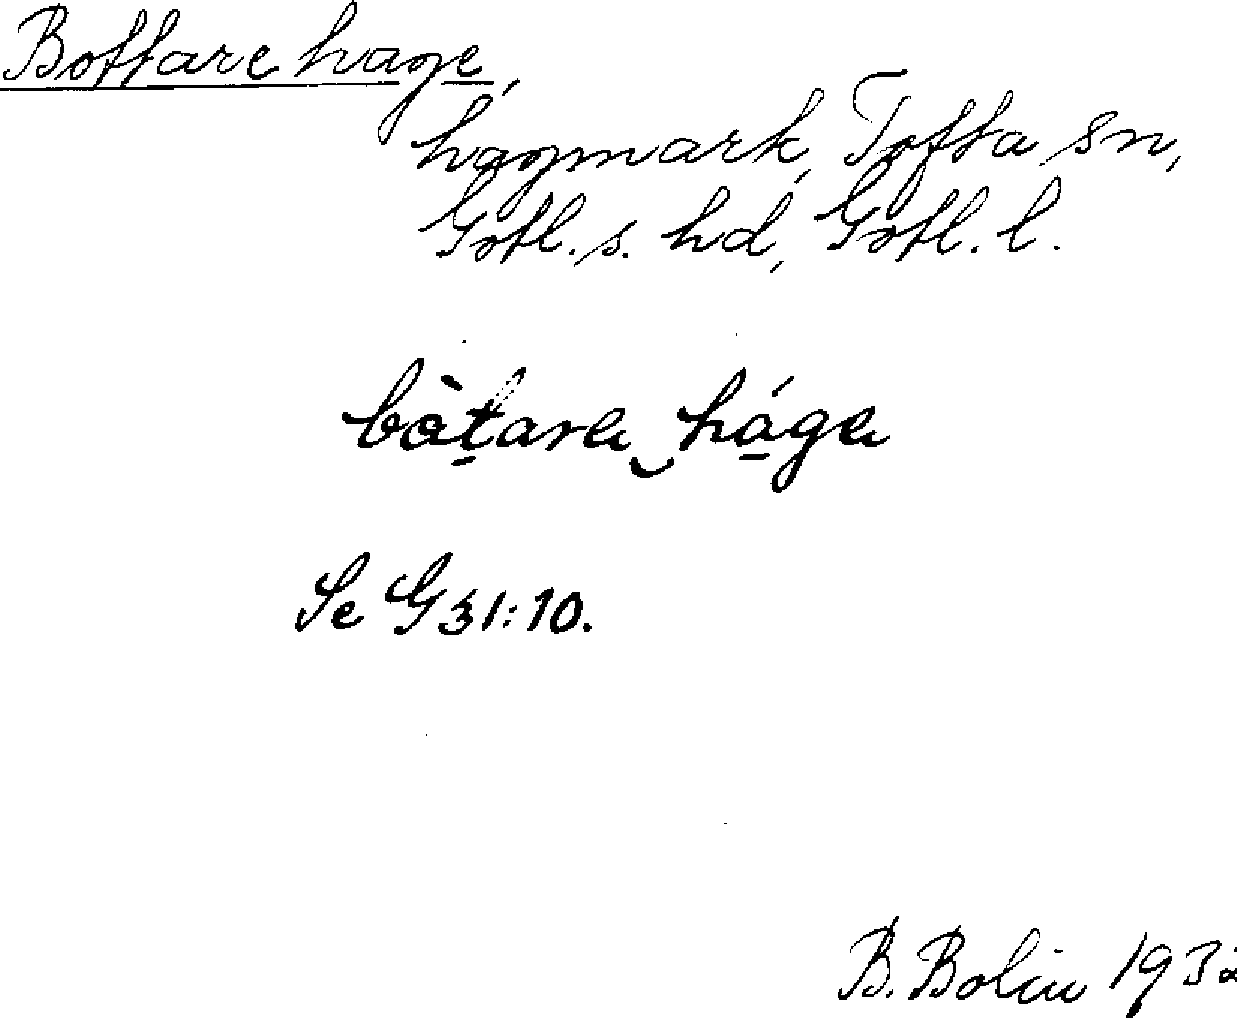 Bottare hage,
hagmark, Tofta sn,
Gotl. s. hd, Gotl. l.
bòt̠are‿há̠ge
Se G31:10.
B. Bolin 1932